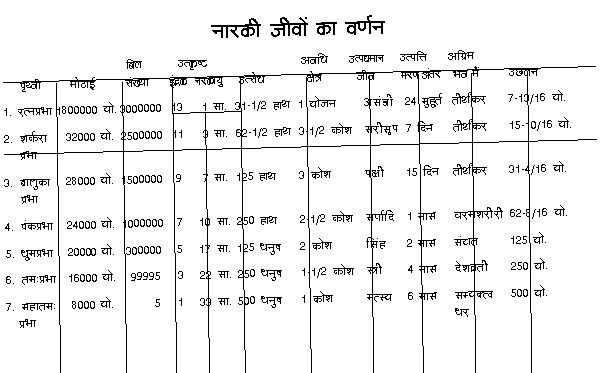 नारकी जीवों का वर्णन
बिल उत्कृष्ट अवधि उत्पद्यमान उत्पत्ति अग्रिम
पृथ्वी मोटाई संख्या इंद्रक नरकायु उत्सेध क्षेत्र जीव मरण अंतर भव में उछलन
1. रत्नप्रभा 1800000 यो. 3000000 13 1 सा. 31-1/2 हाथ 1 योजन असंज्ञी 24 मुहूर्त तीर्थंकर 7-13/16 यो.
2. शर्करा 32000 यो. 2500000 11 3 सा. 62-1/2 हाथ 3-1/2 कोश सरीसृप 7 दिन तीर्थंकर 15-10/16 यो.
प्रभा
3. वालुका 28000 यो. 1500000 9 7 सा. 125 हाथ 3 कोश पक्षी 15 दिन तीर्थंकर 31-4/16 यो.
प्रभा
4. पंकप्रभा 24000 यो. 1000000 7 10 सा. 250 हाथ 2-1/2 कोश सर्पादि 1 मास चरमशरीरी 62-8/16 यो.
5. धूमप्रभा 20000 यो. 300000 5 17 सा. 125 धनुष 2 कोश सिंह 2 मास संयत 125 यो.
6. तमःप्रभा 16000 यो. 99995 3 22 सा. 250 धनुष 1-1/2 कोश स्त्री 4 मास देशव्रती 250 यो.
7. महातमः 8000 यो. 5 1 33 सा. 500 धनुष 1 कोश मत्स्य 6 मास सम्यक्त्व 500 यो.
प्रभा धर